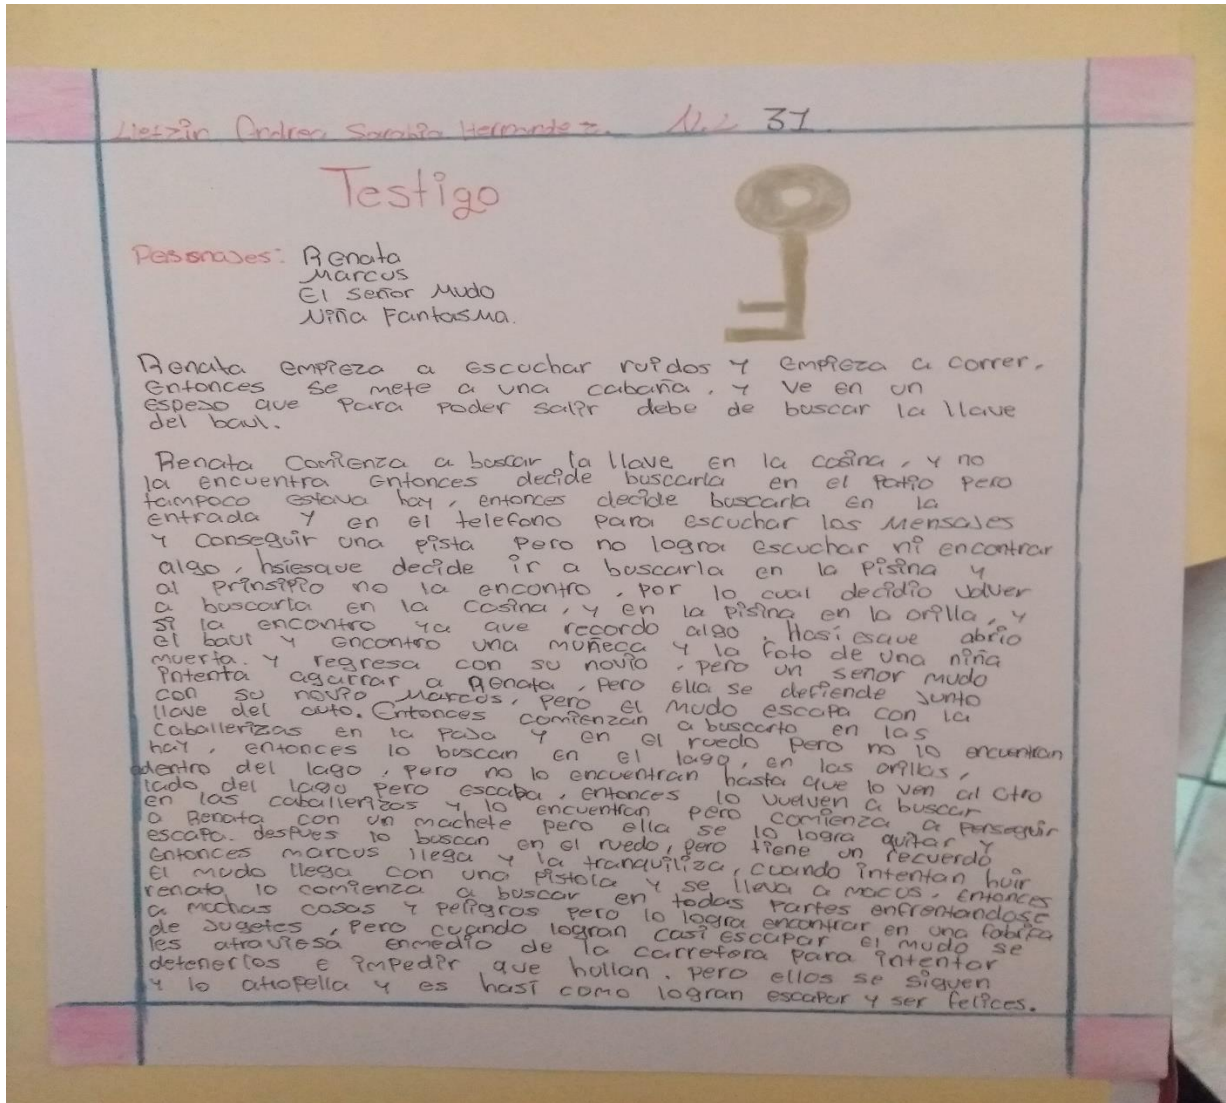 Lietzin Andrea Sarabia Hernandez. N.L 31
Testigo
Personajes: Renata
Marcus
El señor Mudo
Niña Fantasma.
Renata empieza a escuchar ruidos y empieza a correr.
entonces se mete a una cabaña, y ve en un
espeso que para poder salir debe de buscar la llave
del baul.
Renata comienza a buscar la llave en la cosina, y no
la encuentra entonces decide buscarla en el patio pero
tampoco estava hay, entonces decide buscarla en la
entrada y en el telefono para escuchar los mensajes
y conseguir una pista pero no logra escuchar ni encontrar
algo, hsiesque decide ir a buscarla en la pisina y
al prinsipio no la encontro, por lo cual decidio volver
a buscarla en la cosina, y en la pisina en la orilla, y
si la encontro ya que recordo algo. Hasi esque abrio
el baul y encontro una muñeca y la foto de una niña
muerta. y regresa con su novio, pero un señor mudo
intenta agarrar a Renata, pero ella se defiende junto
con su novio Marcos, pero el mudo escapa con la
llave del auto. Entonces comienzan a buscarlo en las
caballerizas en la paja y en el ruedo pero no lo encuentran
hay, entonces lo buscan en el lago, en las orillas,
adentro del lago, pero no lo encuentran hasta que lo ven al otro
lado del lago pero escapa, entonces lo vuelven a buscar
en las caballerizas y lo encuentran pero comienza a perseguir
a Renata con un machete pero ella se lo logra quitar y
escapa. despues lo buscan en el ruedo, pero tiene un recuerdo
entonces marcus llega y la tranquiliza, cuando intentan huir
El mudo llega con una pistola y se lleva a macus, entonces
renata lo comienza a buscar en todas partes enfrentandose
a mochas cosas y peligros pero lo logra encontrar en una fabrica
de jugetes, pero cuando logran casi escapar el mudo se
les atraviesa enmedio de la carretera para intentar
detenerlos e impedir que hullan. pero ellos se siguen
y lo atropella y es hasi como logran escapar y ser felices.